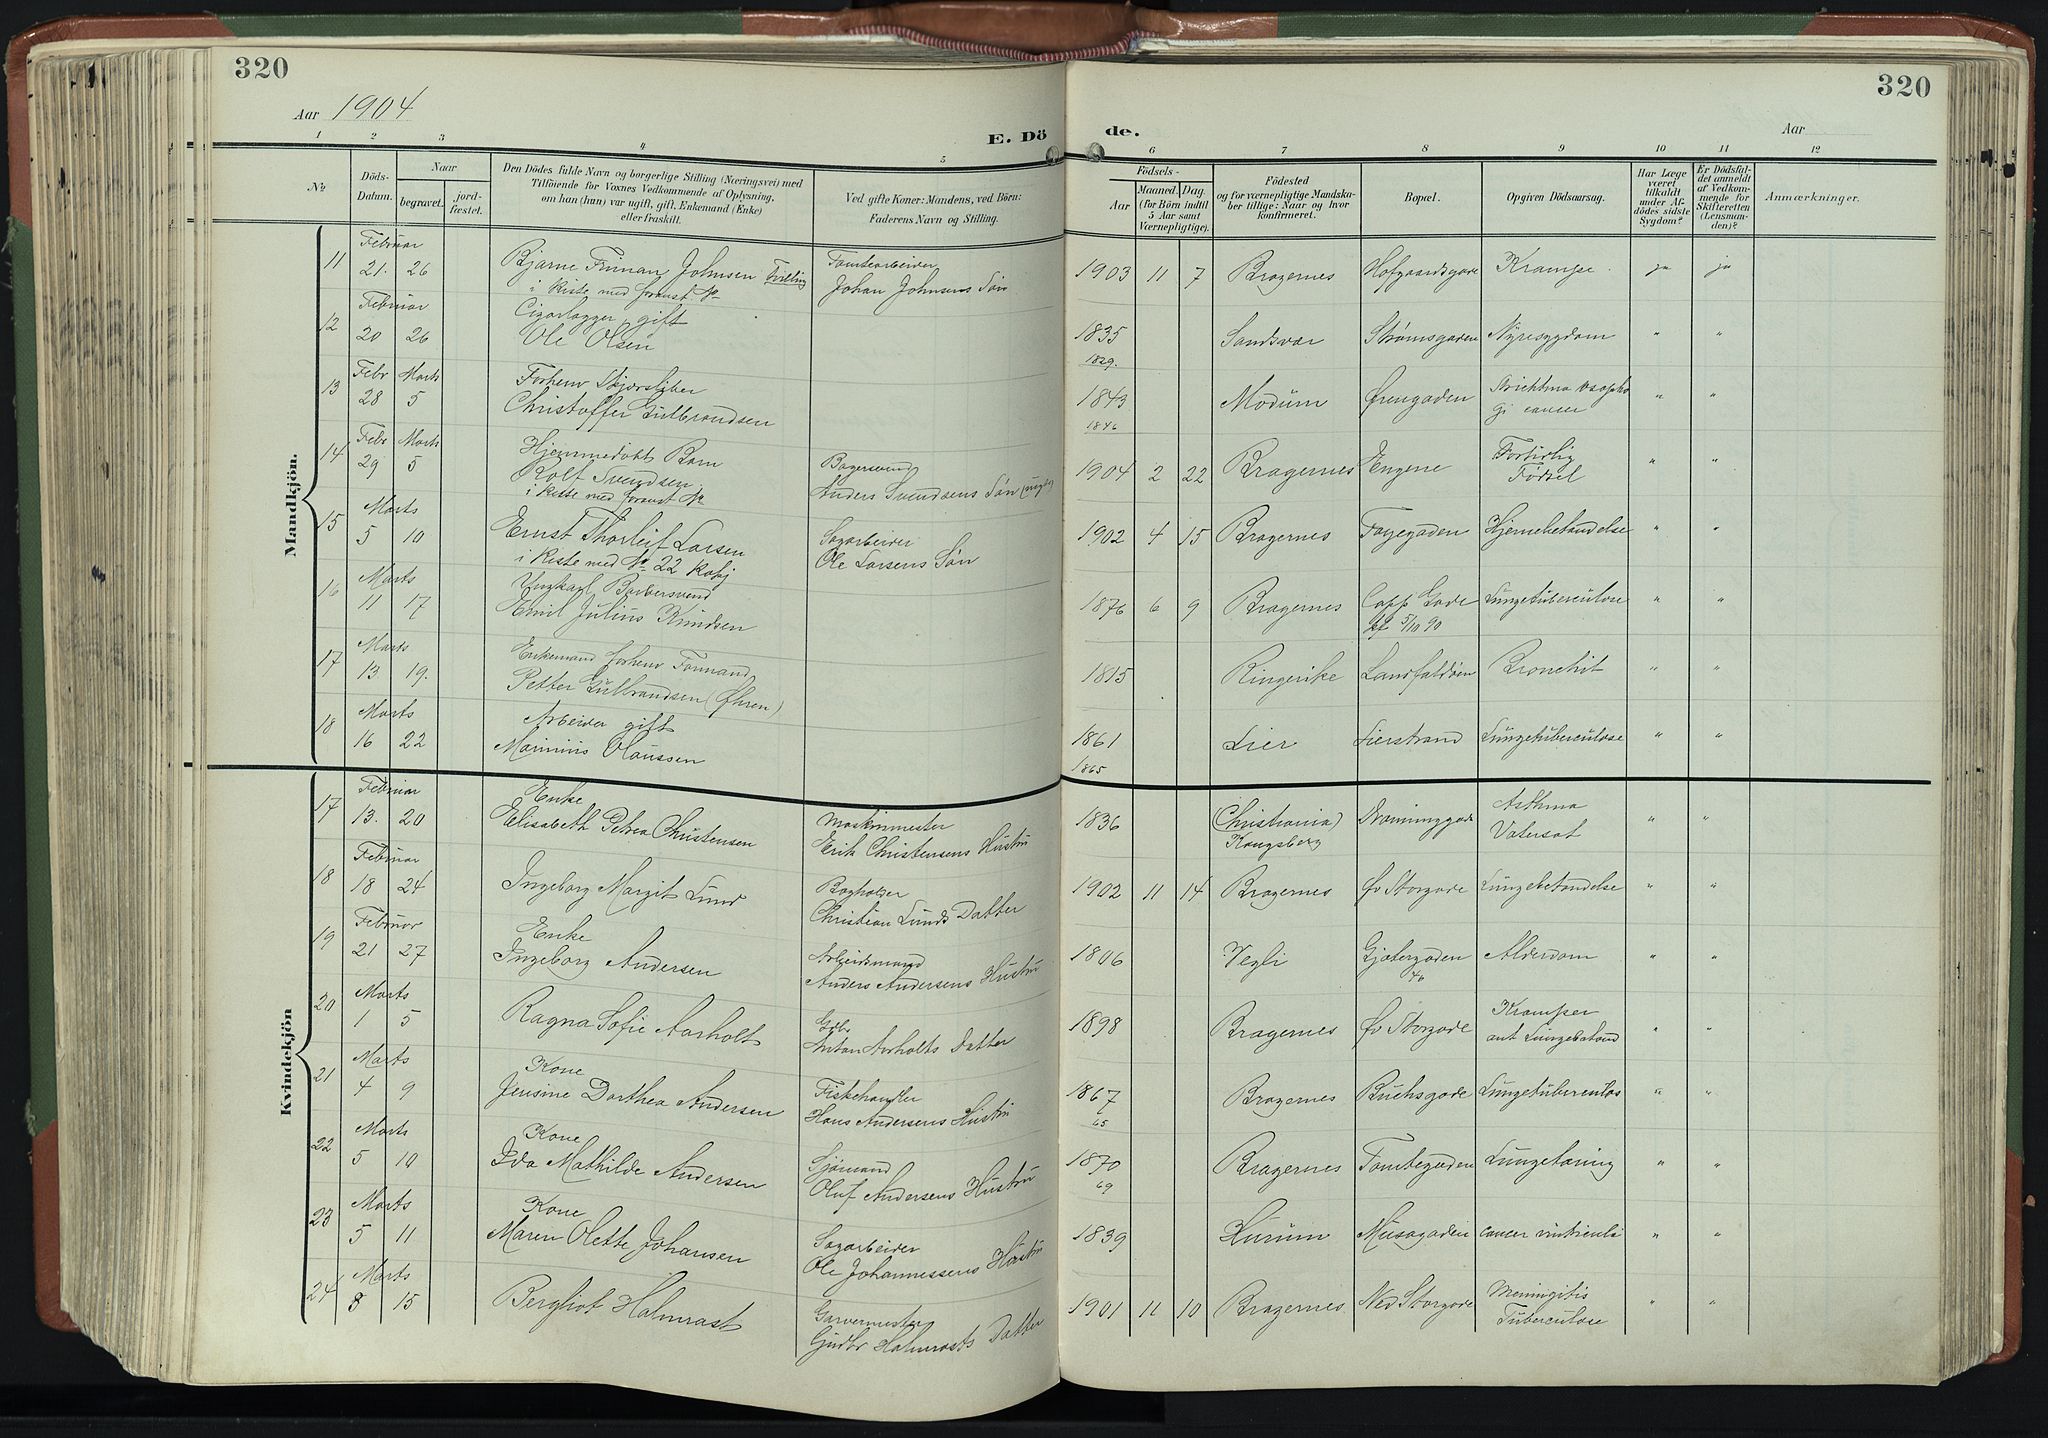 320
320
Aar 1904
E. Dö
de.
Aar
1 2 3 4 5
6 7 8 9 10 11 12
No
Döds-
Datum.
Naar
begravet.
jord-
fæstet.
Den Dödes fulde Navn og borgerlige Stilling (Næringsvei) med
Tilföiende for Voxnes Vedkommende af Oplysning,
om han (hun) var ugift, gift, Enkemand (Enke)
eller fraskilt.
Ved gifte Koner: Mandens, ved Börn:
Faderens Navn og Stilling.
Födsels-
Aar
Maaned.
Dag.
(for Börn indtil
5 Aar samt
Værnepligtige).
Födested
og for værnepligtige Mandska-
ber tillige: Naar og hvor
konfirmeret.
Bopæl.
Opgiven Dödsaarsag.
Har Læge
været
tilkaldt
under Af-
dödes sidste
Sygdom?
Er Dödsfal-
det anmeldt
af Vedkom-
mende for
Skifteretten
(Lensman-
den)?
Anmærkninger.
Mandkjön.
11 Februar
21. 26 Bjarne Friman Johnsen Tvilling
i Kiste med foranst. No
Tomtearbeider
Johan Johnsens Søn
1903 11 7 Bragernes Hofgaardsgade Krampe. ja ja
12 Februar
20 26 Cigarlagger, gift
Ole Olsen
1835
1829.
Sandsvær Strømsgaden Nyresygdom " "
13 Febr Marts
28 5 Forhenv Skjærsliber
Christoffer Gulbrandsen
1843
1846
Modum Ørengaden
cancer " "
14 Febr Marts
29 5 Hjemmedøbt Barn
Rolf Svendsen
i Kiste med foranst No
Bagersvend
Anders Svendsens Søn
1904 2 22 Bragernes Engene Fortidlig
Fødsel " "
15 Marts
5 10 Ernst Thorleif Larsen
i Kiste med No 22
Sagarbeider
Ole Larsens Søn
1902 4 15 Bragernes Tagegaden Hjernebetændelse " "
16 Marts
11 17 Ungkarl Barbersvend
Emil Julius Knudsen
1876 6 9 Bragernes Capp. Gade
kf 5/10 90
Lungetuberculose " "
17 Marts
13 19. Enkemand forhenv Formand
Petter Gulbrandsen (Øhren)
1815 Ringerike Landfaldøen Bronchit " "
18 Marts
16 22 Arbeider gift
Marinius Olaussen
1861
1865
Lier Lierstrand Lungetuberculose " "
Kvindekjön
17 Februar
13. 20 Enke
Elisabeth Petrea Christensen
Maskinmester
Erik Christensens Hustru
1836 (Christiania)
Kongsberg
Dronninggade Asthma
Vatersot " "
18 Februar
18 24 Ingeborg Margit Lund
Bogholder
Christian Lunds Datter
1902 11 14 Bragernes Øv Storgade Lungebetændelse " "
19 Februar
21 27 Enke
Ingeborg Andersen
Arbeidsmand
Anders Andersens Hustru
1806 Vegli Gjætergaden
46
Alderdom " "
20 Marts
1 5 Ragna Sofie Aarholt
Gdbr.
Anton Aarholts Datter
1898 Bragernes Øv Storgade Kramper
ant Lungebetænd " "
21 Marts
4 9 Kone
Jensine Dorthea Andersen
Fiskehandler
Hans Andersens Hustru
1867
65
Bragernes Buchsgade Lungetuberculos " "
22 Marts
5 10 Kone
Ida Mathilde Andersen
Sjømand
Oluf Andersens Hustru
1870
69
Bragernes Tomtegaden Lungetæring " "
23 Marts
5 11 Kone
Maren Olette Johansen
Sagarbeider
Ole Johannessens Hustru
1839 Hurum Musogaden cancer ventriculi " "
24 Marts
8 15 Bergliot Halmrast
Garvermester
Gudbr Halmrasts Datter
1901 11 10 Bragernes Ned Storgade Meningitis
Tuberculose " "